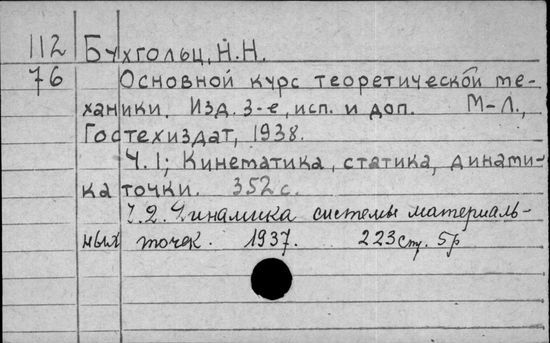 112 Бухгольц, Н.Н.
76 Основной курс теоретической ме-
ханики. Изд. 3-е, исп. и доп. М-Л.,
Гостехиздат, 1938.
Ч.1; Кинематика, статика, динами-
ка точки. 352 с.
Ч.2. Динамика системы материаль-
ных точек. 1937. 223 стр. 5р